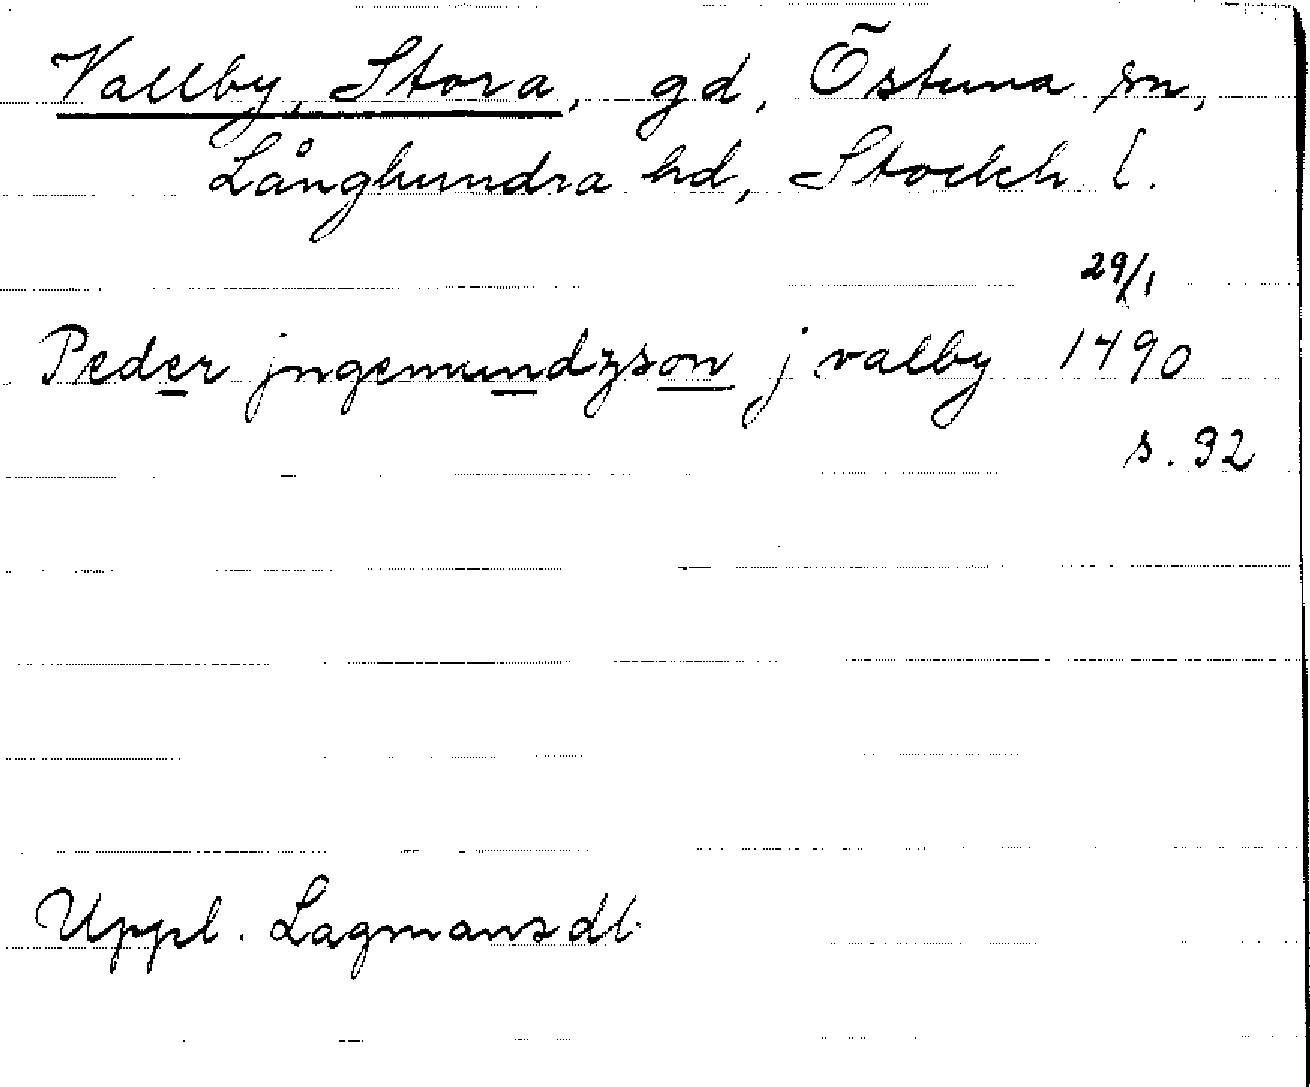 Vallby, Stora, gd, Östuna sn,
Långhundra hd, Stockh l.
29/1
Peder jngemundzson j valby 1490
s. 92
Uppl. Lagmansdb.